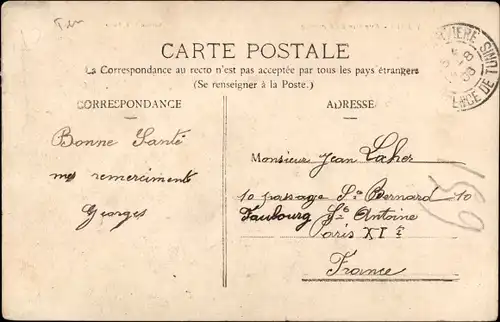 CARTE POSTALE
La Correspondance au recto n'est pas acceptée par tous les pays étrangers
(Se renseigner à la Poste.)
CORRESPONDANCE
ADRESSE
Bonne Santé
mes remerciments
Georges
Monsieur Jean Laher
10 passage St Bernard 10
Faubourg St Antoine
Paris XI e
France
159